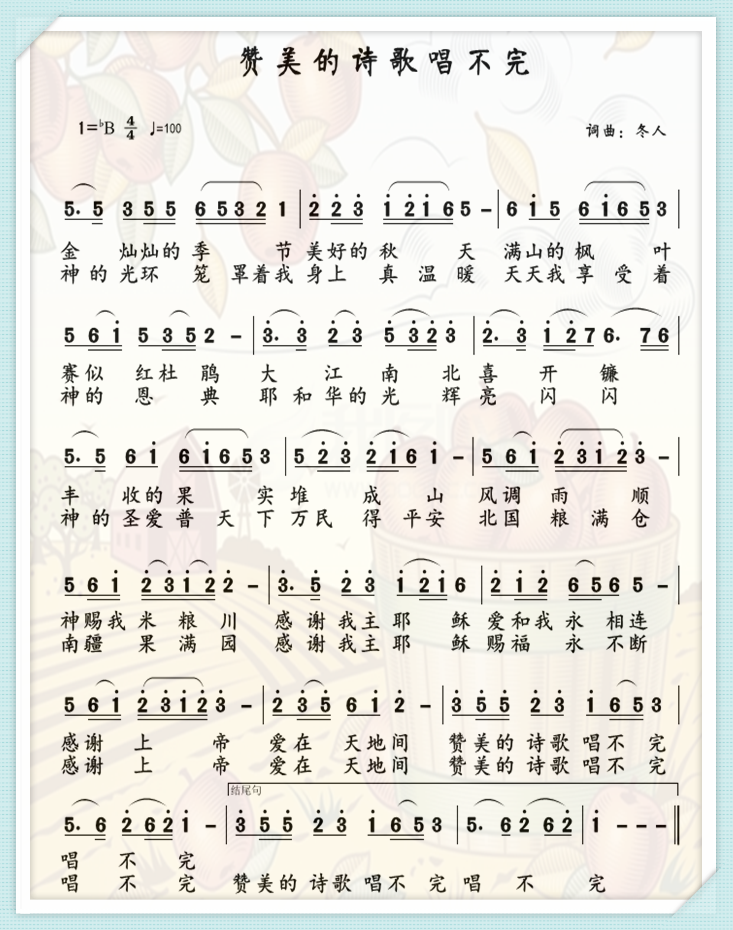 赞美的诗歌唱不完
1=♭B 4/4 ♩=100 词曲：冬人
5. 5 3 5 5 6 5 3 2 1 | 2 2 3 1 2 1 6 5 – | 6 1 5 6 1 6 5 3 |
金 灿灿的 季 节 美好的 秋 天 满山的 枫 叶
神的 光环 笼 罩着我 身上 真 温 暖 天天我 享 受 着
5 6 1 5 3 5 2 – | 3. 3 2 3 5 3 2 3 | 2. 3 1 2 7 6. 7 6 |
赛似 红杜 鹃 大 江 南 北 喜 开 镰
神的 恩 典 耶 和 华的 光 辉 亮 闪 闪
5. 5 6 1 6 1 6 5 3 | 5 2 3 2 1 6 1 – | 5 6 1 2 3 1 2 3 – |
丰 收的 果 实 堆 成 山 风调 雨 顺
神 的 圣爱 普 天 下 万民 得 平安 北国 粮 满 仓
5 6 1 2 3 1 2 2 – | 3. 5 2 3 1 2 1 6 | 2 1 2 6 5 6 5 – |
神赐我 米 粮 川 感 谢 我主 耶 稣 爱和我 永 相连
南疆 果 满 园 感 谢 我主 耶 稣 赐福 永 不断
5 6 1 2 3 1 2 3 – | 2 3 5 6 1 2 – | 3 5 5 2 3 1 6 5 3 |
感谢 上 帝 爱在 天地间 赞美的 诗歌 唱不 完
感谢 上 帝 爱在 天地间 赞美的 诗歌 唱不 完
结尾句
5. 6 2 6 2 1 – | 3 5 5 2 3 1 6 5 3 | 5. 6 2 6 2 | 1 – – – ‖
唱 不 完
唱 不 完 赞美的 诗歌 唱不 完 唱 不 完